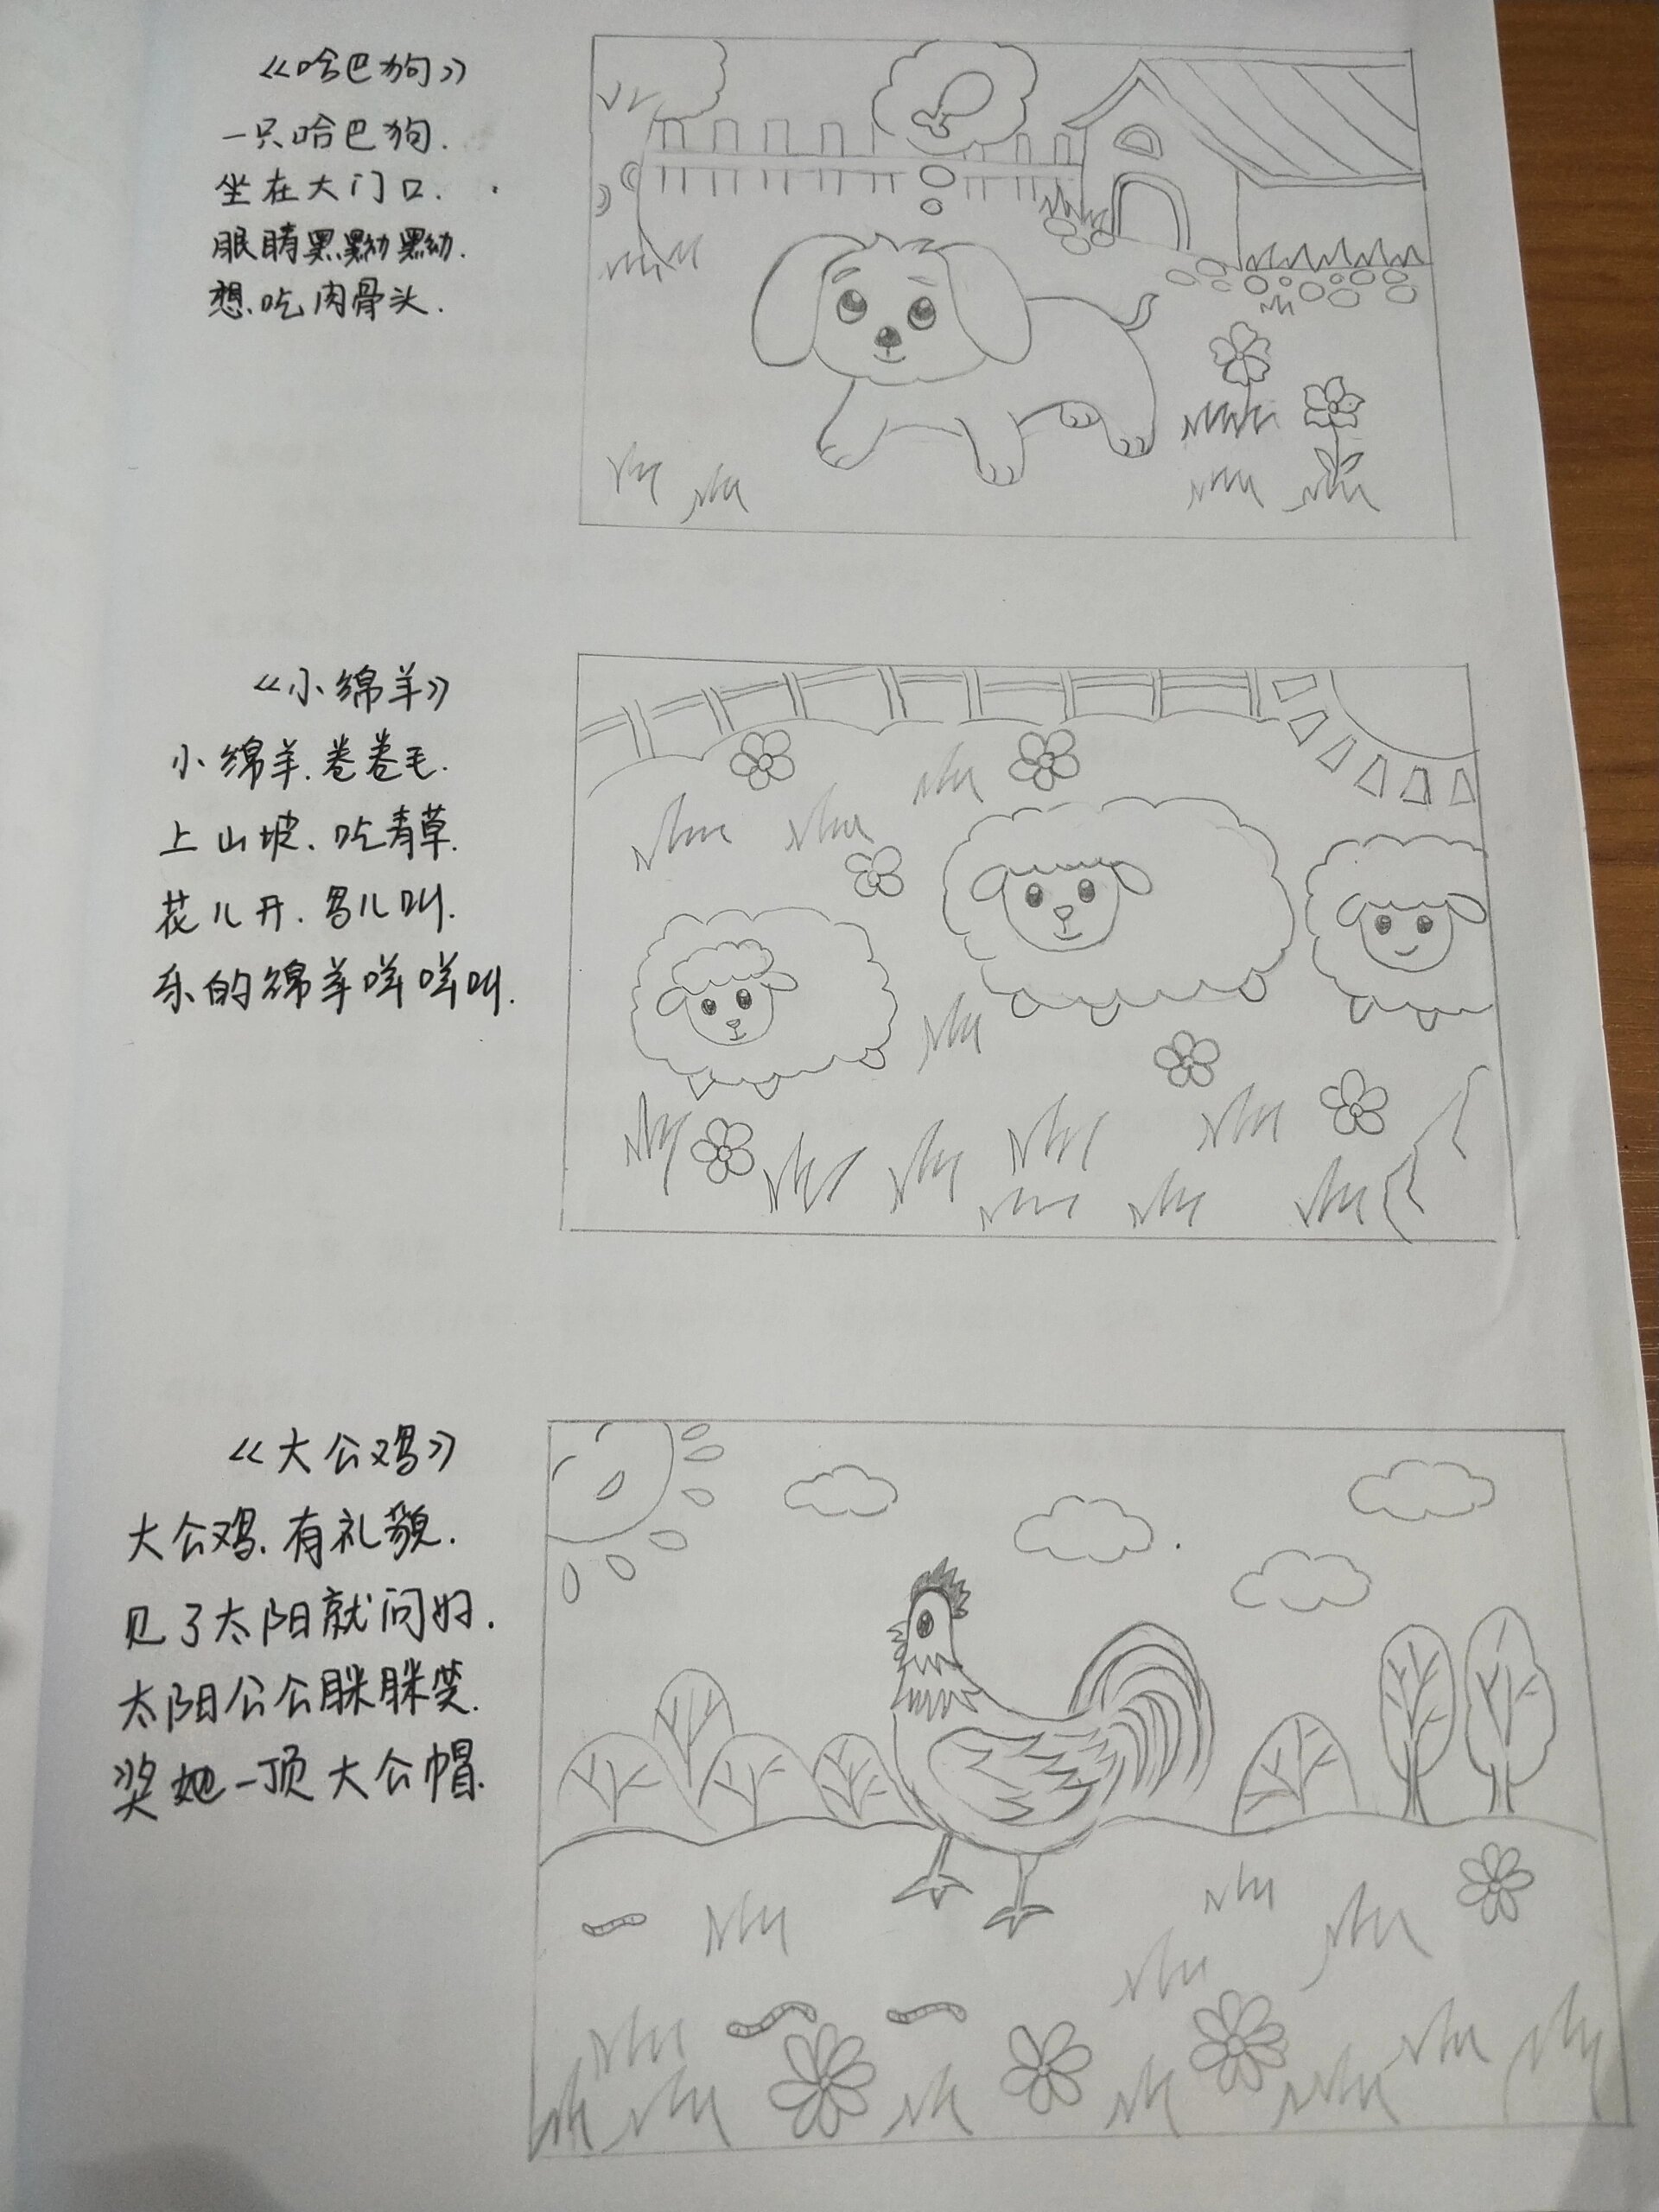 《哈巴狗》
一只哈巴狗.
坐在大门口.
眼睛黑黝黝.
想吃肉骨头.
《小绵羊》
小绵羊.卷卷毛.
上山坡.吃青草.
花儿开.鸟儿叫.
乐的绵羊咩咩叫.
《大公鸡》
大公鸡.有礼貌.
见了太阳就问好.
太阳公公眯眯笑.
奖她一顶大公帽.